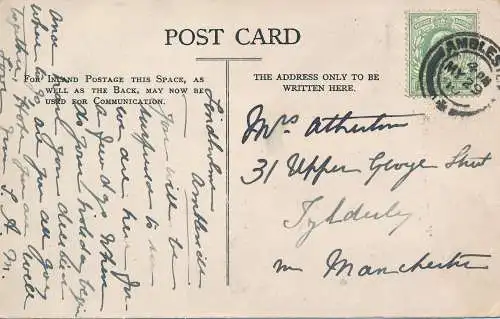 POST CARD
FOR INLAND POSTAGE THIS SPACE, AS
WELL AS THE BACK, MAY NOW BE
USED FOR COMMUNICATION.
THE ADDRESS ONLY TO BE
WRITTEN HERE.
AMBLES
MY 2
Mrs Atherton
31 Upper George Street
Tyldesley
nr Manchester
Ambleside
You will be
surprised to
we are here for
a few days When
do your holidays begin
Once
where do you all go
together Hope you are well
Love from